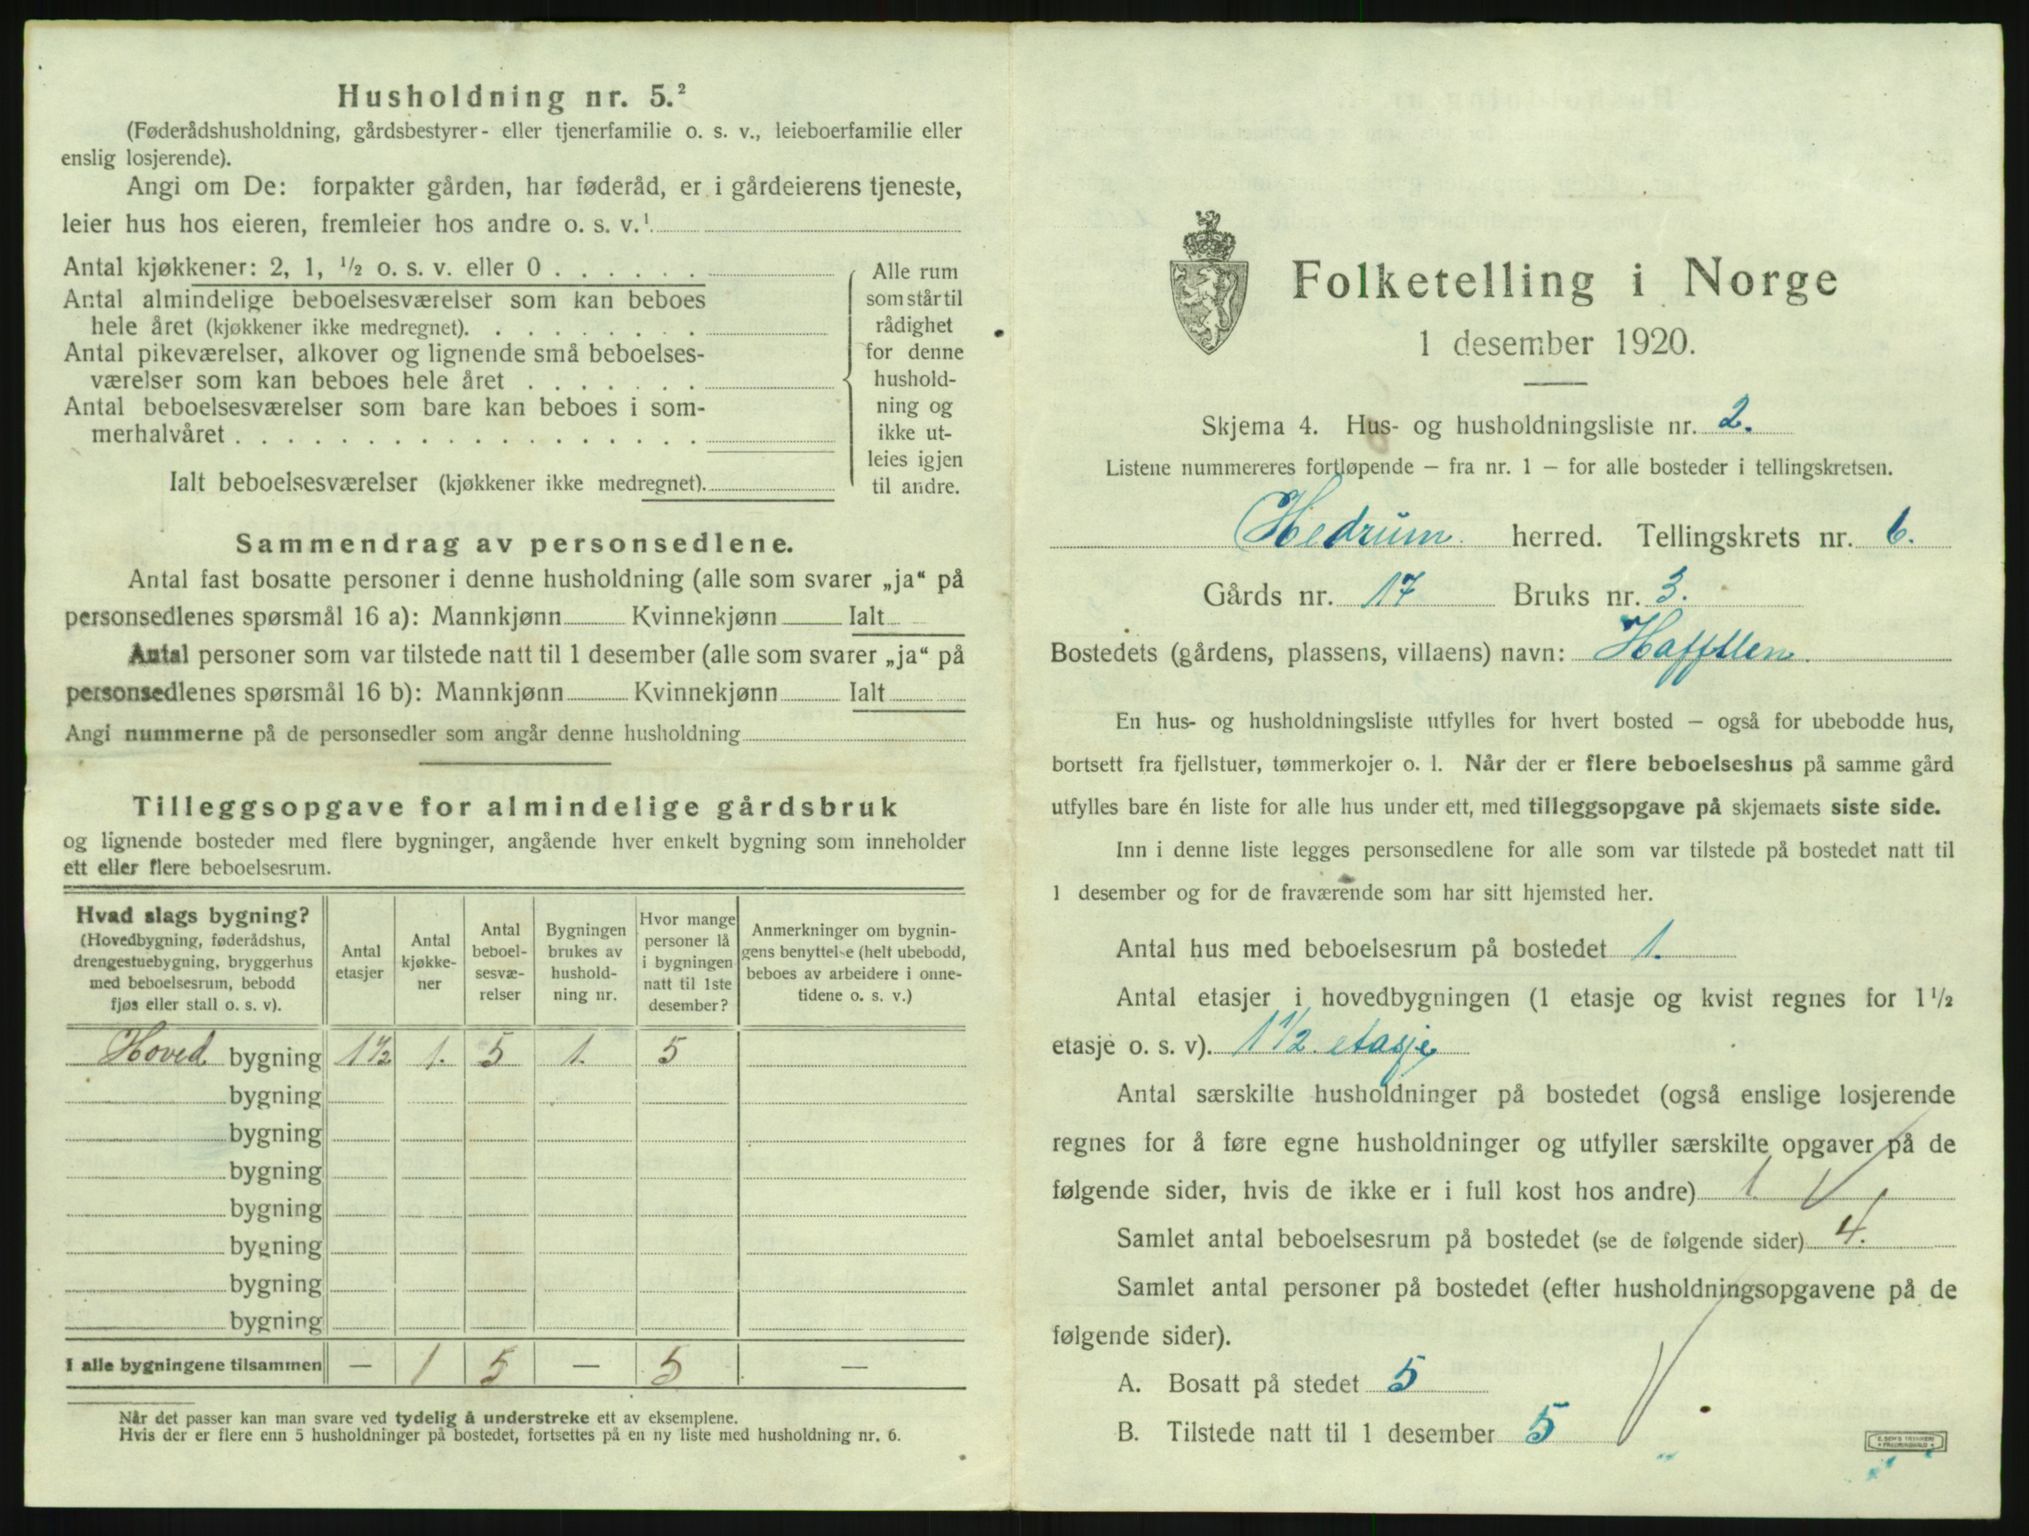 Husholdning nr. 5.²
(Føderådshusholdning, gårdsbestyrer- eller tjenerfamilie o. s. v., leieboerfamilie eller
enslig losjerende).
Angi om De: forpakter gården, har føderåd, er i gårdeierens tjeneste,
leier hus hos eieren, fremleier hos andre o. s. v.¹
Antal kjøkkener: 2, 1, ½ o. s. v. eller 0 . . . . . .
Antal almindelige beboelsesværelser som kan beboes
hele året (kjøkkener ikke medregnet). . . . . . . . .
Antal pikeværelser, alkover og lignende små beboelses-
værelser som kan beboes hele året . . . . . . .
Antal beboelsesværelser som bare kan beboes i som-
merhalvåret . . . . . . . . . . . . . . . . . .
Ialt beboelsesværelser (kjøkkener ikke medregnet).
Alle rum
som står til
rådighet
for denne
hushold-
ning og
ikke ut-
leies igjen
til andre.
Sammendrag av personsedlene.
Antal fast bosatte personer i denne husholdning (alle som svarer „ja“ på
personsedlenes spørsmål 16 a): Mannkjønn Kvinnekjønn Ialt
Antal personer som var tilstede natt til 1 desember (alle som svarer „ja“ på
personsedlenes spørsmål 16 b): Mannkjønn Kvinnekjønn Ialt
Angi nummerne på de personsedler som angår denne husholdning
Tilleggsopgave for almindelige gårdsbruk
og lignende bosteder med flere bygninger, angående hver enkelt bygning som inneholder
ett eller flere beboelsesrum.
Hvad slags bygning?
(Hovedbygning, føderådshus,
drengestuebygning, bryggerhus
med beboelsesrum, bebodd
fjøs eller stall o. s. v).
Antal
etasjer
Antal
kjøkke-
ner
Antal
beboel-
sesvæ-
relser
Bygningen
brukes av
hushold-
ning nr.
Hvor mange
personer lå
i bygningen
natt til 1ste
desember?
Anmerkninger om bygnin-
gens benyttelse (helt ubebodd,
beboes av arbeidere i onne-
tidene o. s. v.)
Hoved bygning 1½ 1. 5 1. 5
bygning
bygning
bygning
bygning
bygning
bygning
bygning
I alle bygningene tilsammen — 1 5 — 5 —
Når det passer kan man svare ved tydelig å understreke ett av eksemplene.
Hvis der er flere enn 5 husholdninger på bostedet, fortsettes på en ny liste med husholdning nr. 6.
Folketelling i Norge
1 desember 1920.
Skjema 4. Hus- og husholdningsliste nr. 2.
Listene nummereres fortløpende – fra nr. 1 – for alle bosteder i tellingskretsen.
Hedrum herred. Tellingskrets nr. 6.
Gårds nr. 17 Bruks nr. 3.
Bostedets (gårdens, plassens, villaens) navn:
En hus- og husholdningsliste utfylles for hvert bosted – også for ubebodde hus,
bortsett fra fjellstuer, tømmerkojer o. l. Når der er flere beboelseshus på samme gård
utfylles bare én liste for alle hus under ett, med tilleggsopgave på skjemaets siste side.
Inn i denne liste legges personsedlene for alle som var tilstede på bostedet natt til
1 desember og for de fraværende som har sitt hjemsted her.
Antal hus med beboelsesrum på bostedet 1.
Antal etasjer i hovedbygningen (1 etasje og kvist regnes for 1½
etasje o. s. v). 1½ etasje
Antal særskilte husholdninger på bostedet (også enslige losjerende
regnes for å føre egne husholdninger og utfyller særskilte opgaver på de
følgende sider, hvis de ikke er i full kost hos andre) 1.
Samlet antal beboelsesrum på bostedet (se de følgende sider) 4.
Samlet antal personer på bostedet (efter husholdningsopgavene på de
følgende sider).
A. Bosatt på stedet 5
B. Tilstede natt til 1 desember 5